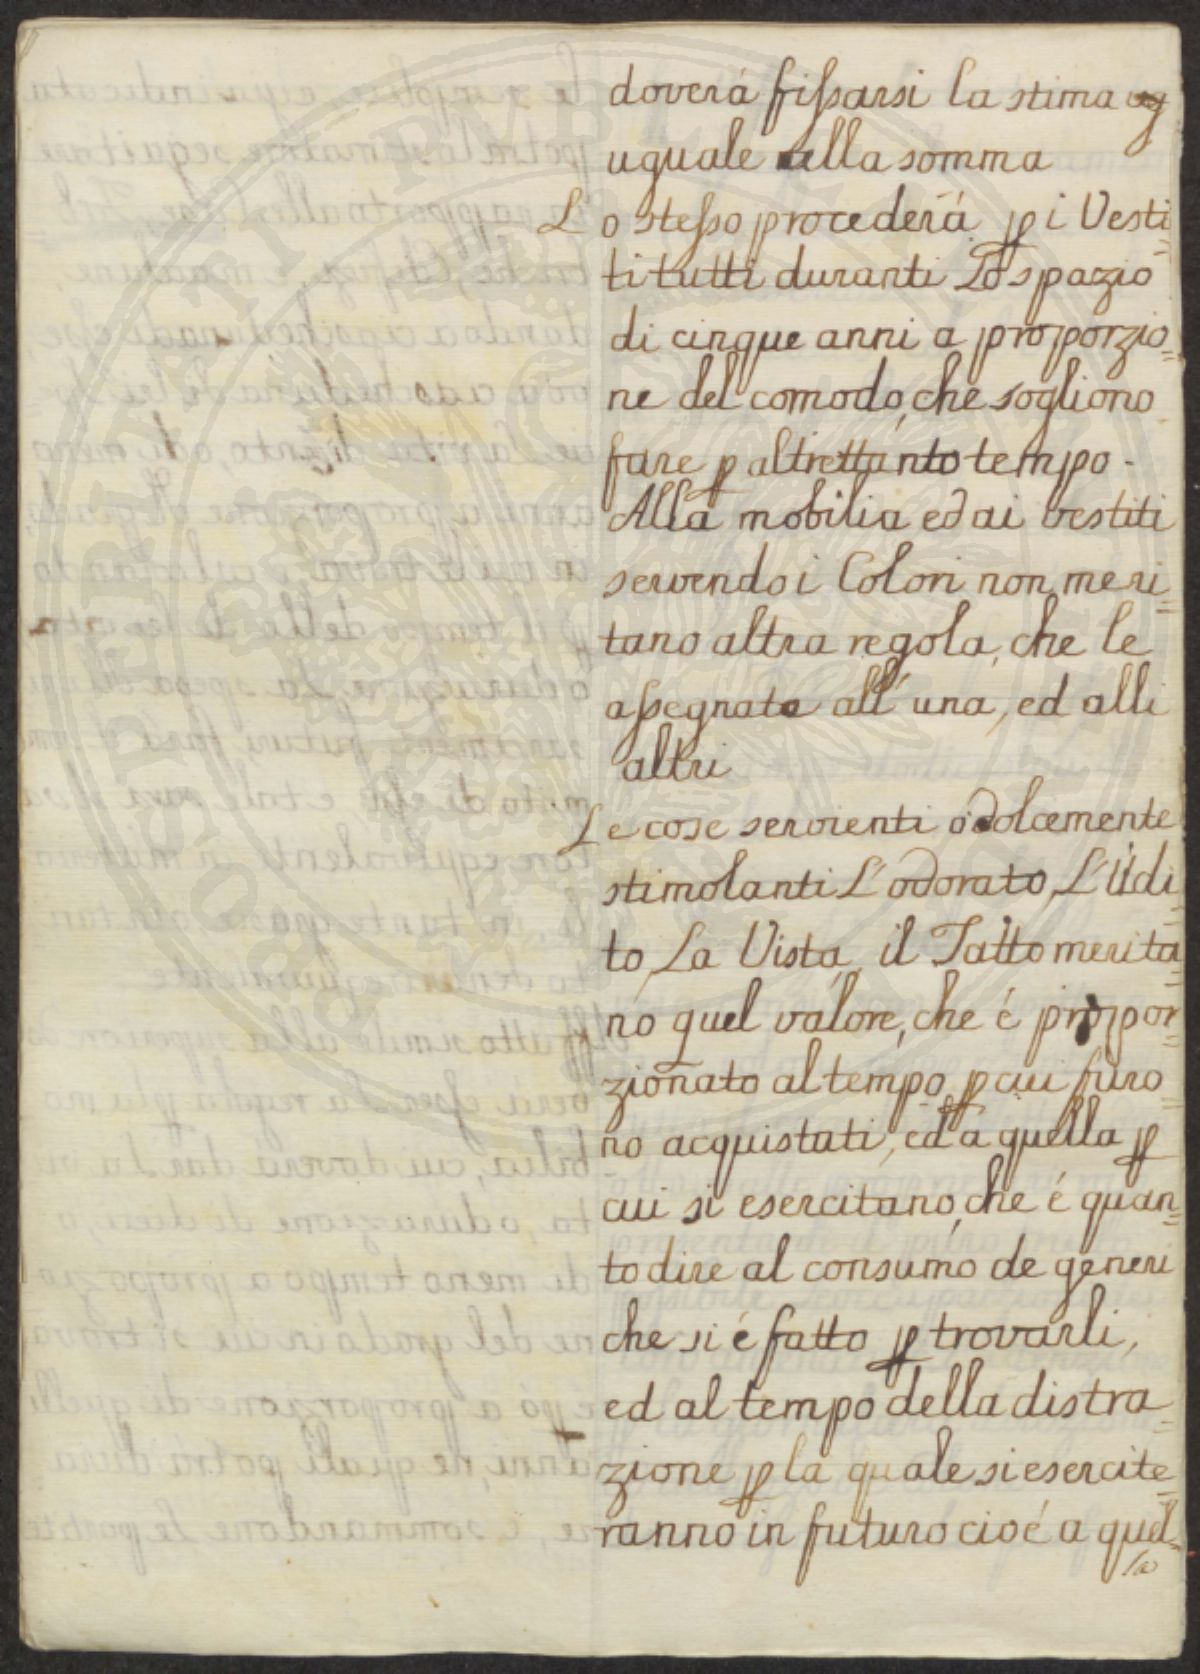 doverá fissarsi la stima
uguale alla somma
Lo stesso procederá ꝑ i Vesti=
ti tutti duranti Lo spazio
di cinque anni a proporzio=
ne del comodo, che sogliono
fare ꝑ altrettanto tempo.
Alla mobilia ed ai vestiti
servendo i Colori non meri=
tano altra regola, che le
assegnate all'una, ed alli
altri
Le cose servienti ó dolcemente
stimolanti L'odorato, L'Udi=
to, La Vista, il Tatto merita=
no quel valore, che é propor=
zionato al tempo, ꝑ cui furo=
no acquistati, ed a quella ꝑ
cui si esercitano, che é quan=
to dire al consumo de generi
che si é fatto ꝑ trovarli,
ed al tempo della distra=
zione ꝑ la quale si esercite=
ranno in futuro cioé a quel=
la